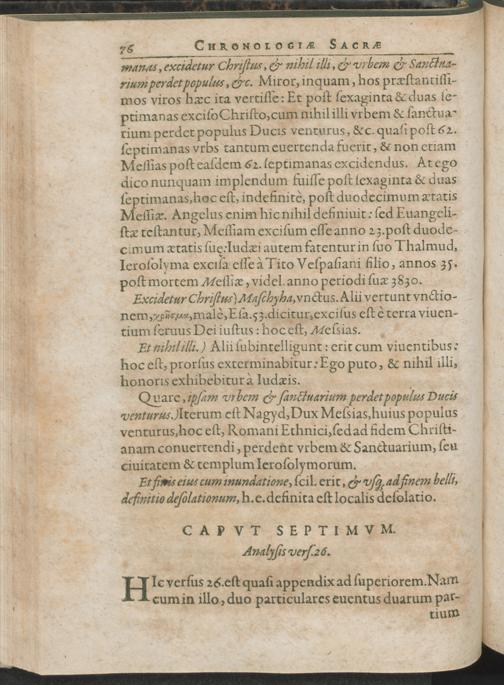 76 CHRONOLOGIÆ SACRÆ
manas, excidetur Christus, & nihil illi, & vrbem & Sanctua-
rium perdet populus, &c. Miror, inquam, hos præstantissi-
mos viros hæc ita vertisse: Et post sexaginta & duas se-
ptimanas exciso Christo, cum nihil illi vrbem & sanctua-
rium perdet populus Ducis venturus, &c. quasi post 62.
septimanas vrbs tantum euertenda fuerit, & non etiam
Messias post easdem 62. septimanas excidendus. At ego
dico nunquam implendum fuisse post sexaginta & duas
septimanas, hoc est, indefinitè, post duodecimum ætatis
Messiæ. Angelus enim hic nihil definiuit: sed Euangeli-
stæ testantur, Messiam excisum esse anno 23. post duode-
cimum ætatis suę: Iudæi autem fatentur in suo Thalmud,
Ierosolyma excisa esse à Tito Vespasiani filio, annos 35.
post mortem Messiæ, videl. anno periodi suæ 3830.
Excidetur Christus) Maschyha, vnctus. Alii vertunt vnctio-
nem, malè, Esa. 53. dicitur, excisus est è terra viuen-
tium seruus Dei iustus: hoc est, Messias.
Et nihil illi.) Alii subintelligunt: erit cum viuentibus:
hoc est, prorsus exterminabitur: Ego puto, & nihil illi,
honoris exhibebitur à Iudæis.
Quare, ipsam vrbem & sanctuarium perdet populus Ducis
venturus.) Iterum est Nagyd, Dux Messias, huius populus
venturus, hoc est, Romani Ethnici, sed ad fidem Christi-
anam conuertendi, perdent vrbem & Sanctuarium, seu
ciuitatem & templum Ierosolymorum.
Et finis eius cum inundatione, scil. erit, & vsq, ad finem belli,
definitio desolationum, h.e. definita est localis desolatio.
CAPVT SEPTIMVM.
Analysis vers. 26.
HIc versus 26. est quasi appendix ad superiorem. Nam
cum in illo, duo particulares euentus duarum par-
tium